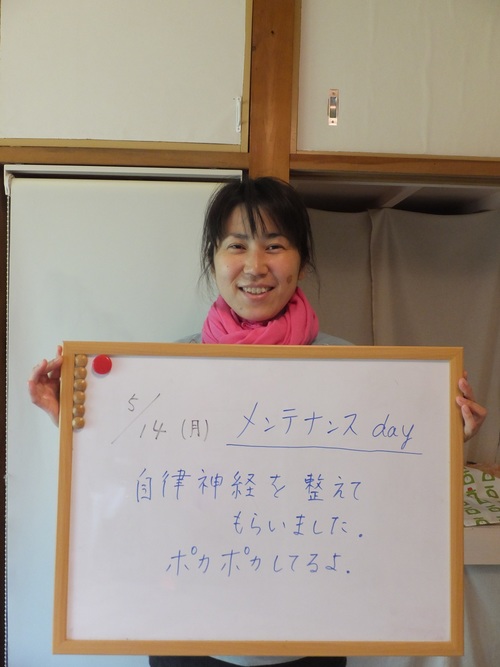 5/14 (月) メンテナンス day
自律神経を整えて
もらいました。
ポカポカしてるよ.